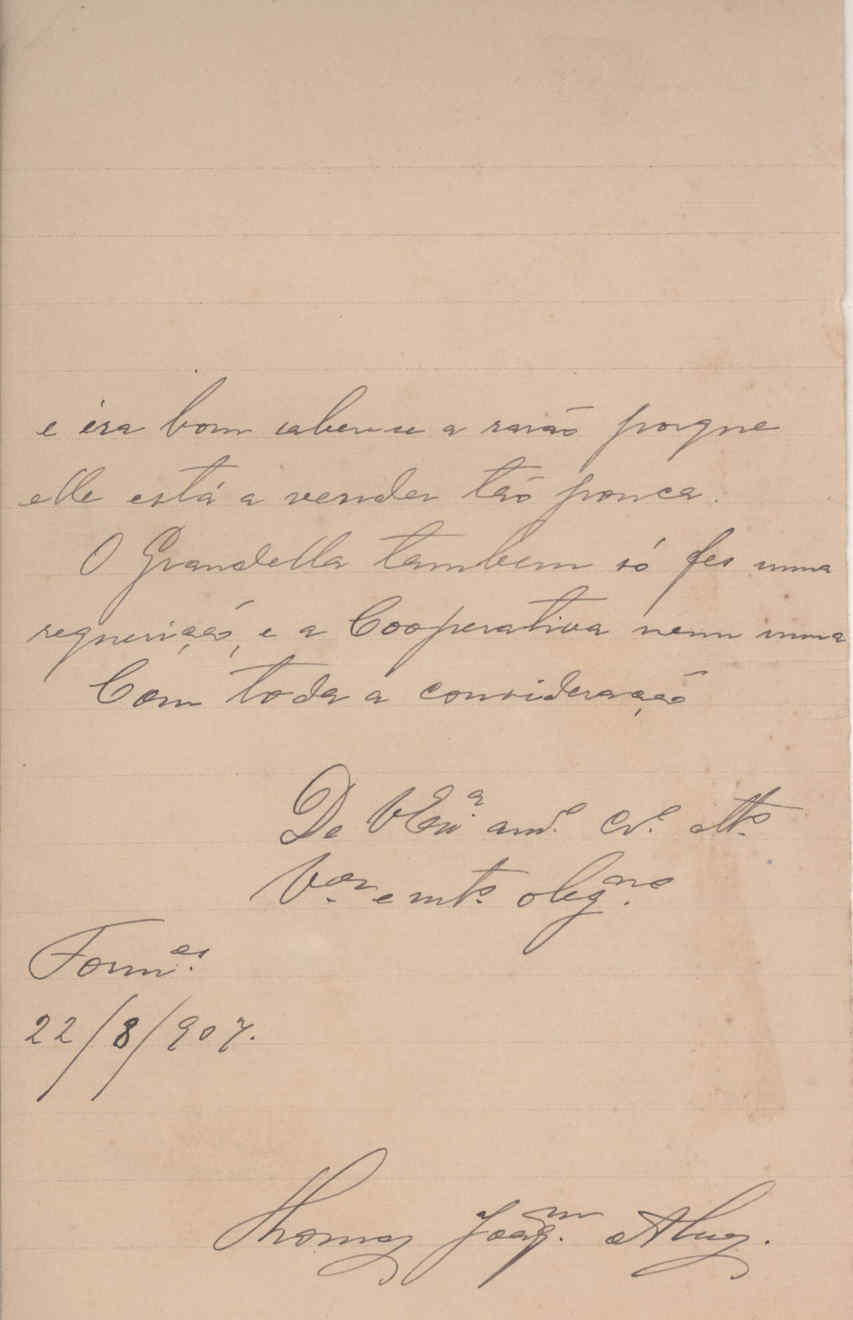 e éra bom saber-se a rasão porque
elle está a vender tão pouca.
O Grandella tambem só fes uma
requerição, e a Cooperativa nem uma
Com toda a consideração
De V Exª amº Crº attº
Vᵒʳ e mtº obrigᵐᵒ
Formᵉˢ
22/8/907.
Thomaz Joaqᵐ Alvez.